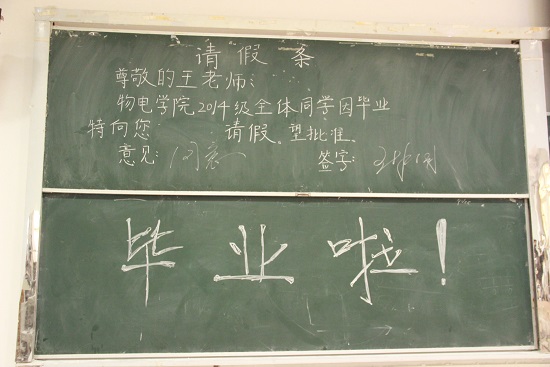 请假条
尊敬的王老师:
物电学院2014级全体同学因毕业
特向您 请假。望批准。
意见: 同意 签字:
毕业啦!